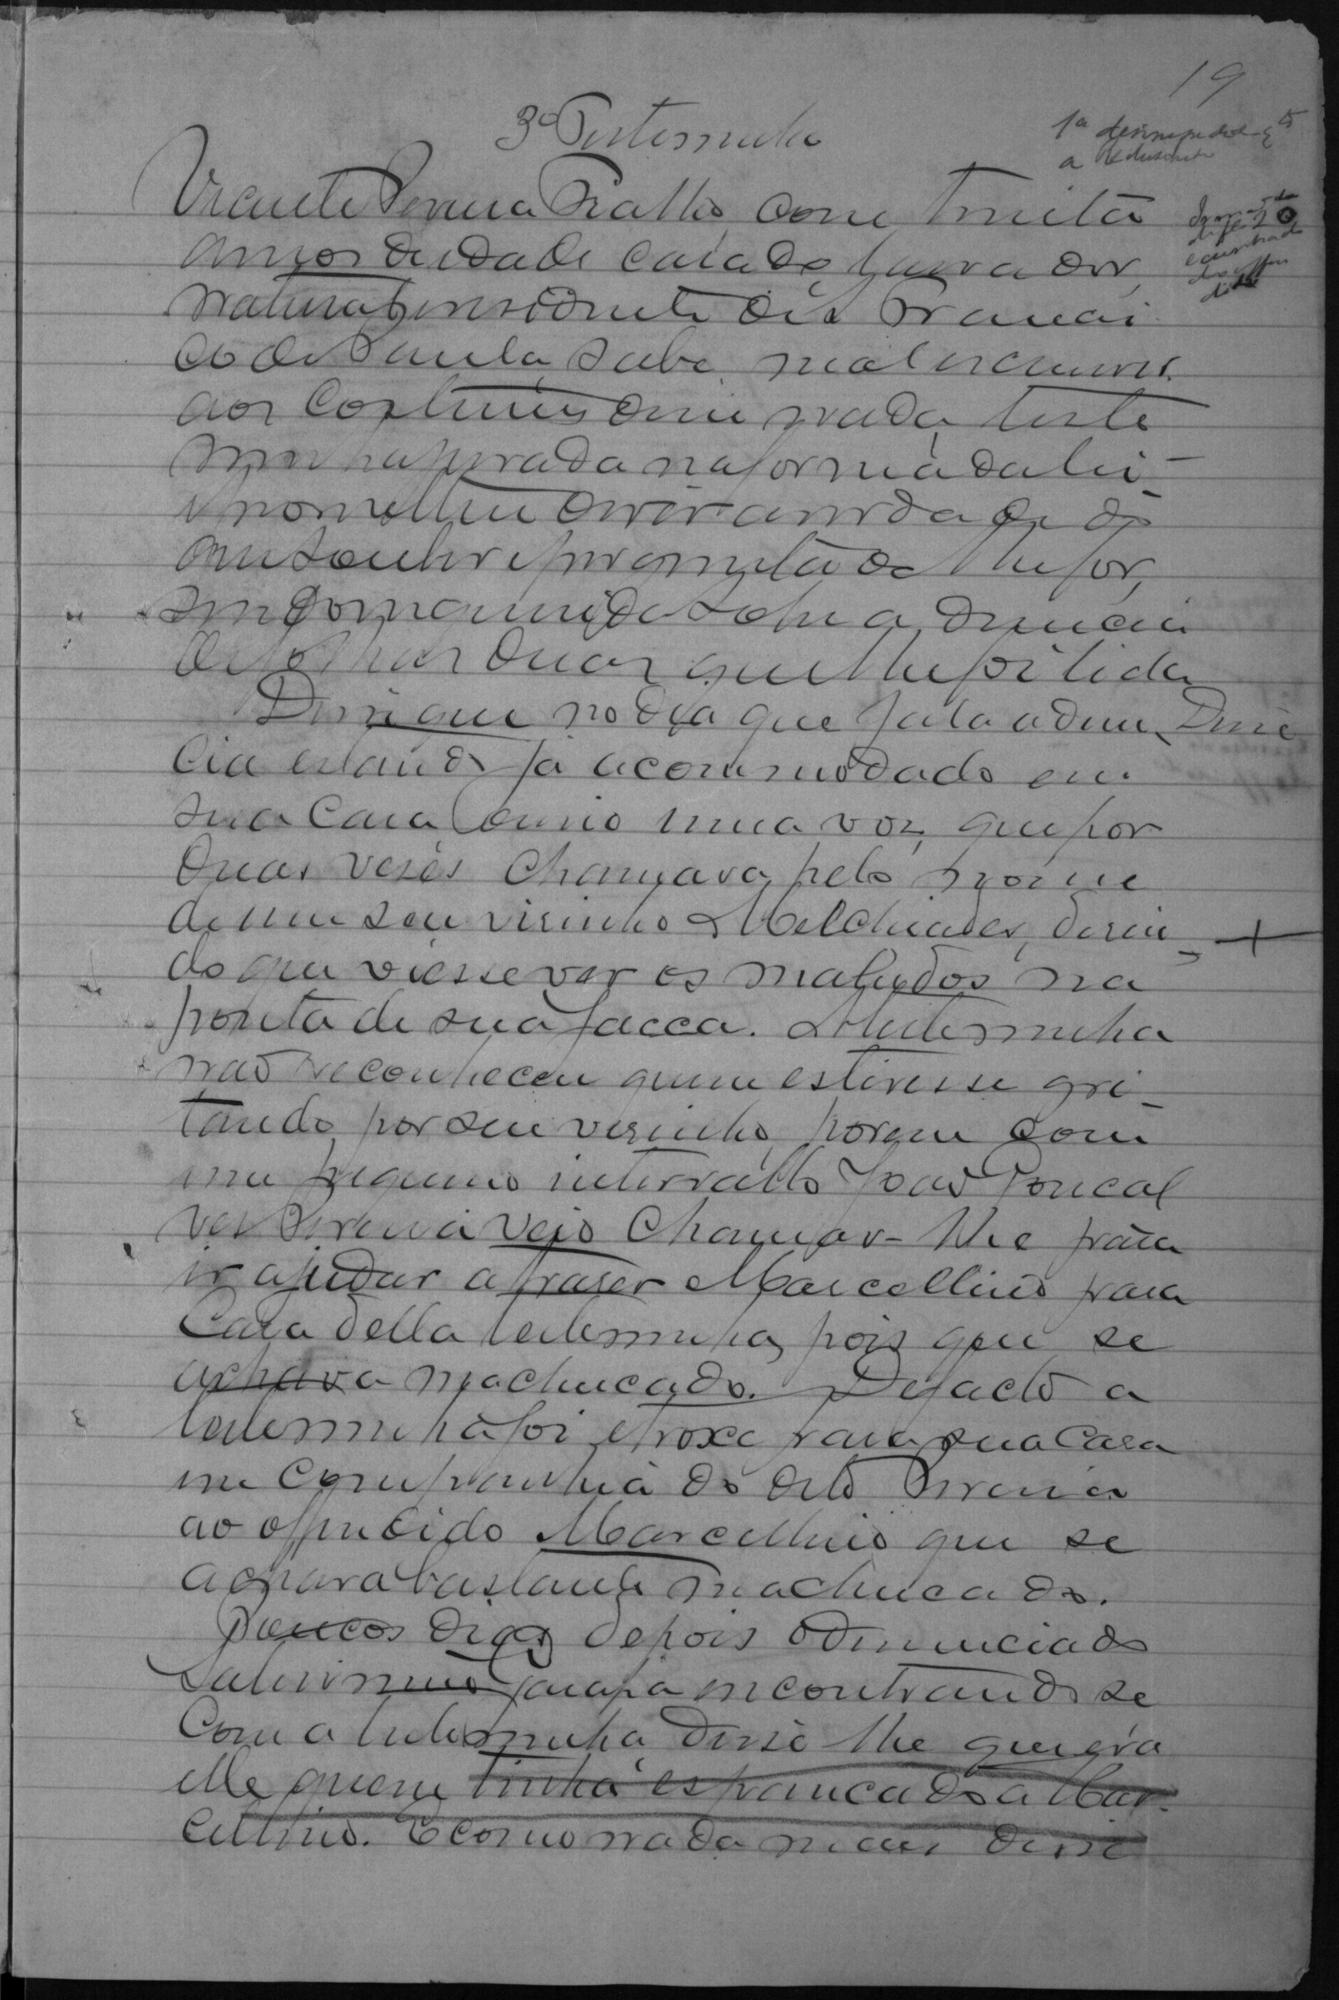 19
3ª Testemunha
1ª
a
Vicente Pereira Fialho, com trinta
annos de idade casado, lavrador,
natural e residente de São Francis
co de Paula, sabe mal escrever.
aos costumes disse nada, teste
munha jurada na forma da lei
e prometteu dizer a verdade do
que soubér e perguntado lhe for,
sendo inquirido sobre a denuncia
de folhas duas que lhe foi lida
Disse que no dia que falla a denun Disse
cia estando já acommodado em
sua casa ouvio uma voz, que por
duas veses chamava pelo nome
de um seu visinho Melchiades, disen
do que viesse ver os maludos na
ponta de sua facca. A testemunha
não reconheceu quem estivesse gri
tando, por seu visinho, porem com
um pequeno intervallo João Gonçal
ves Pereira veio chamar-lhe para
ir ajudar a traser Marcellino para
Casa della testemunha, pois que se
achava machucado. De facto a
testemunha foi e troxe para sua Casa
em companhia do dito Pereira
ao offendido Marcellino que se
achava bastante machucado.
Poucos dias depois o denunciado
Saturnino encontrando se
com a testemunha disse lhe que era
elle quem tinha espancado a Mar
cellino. E como nada mais disse